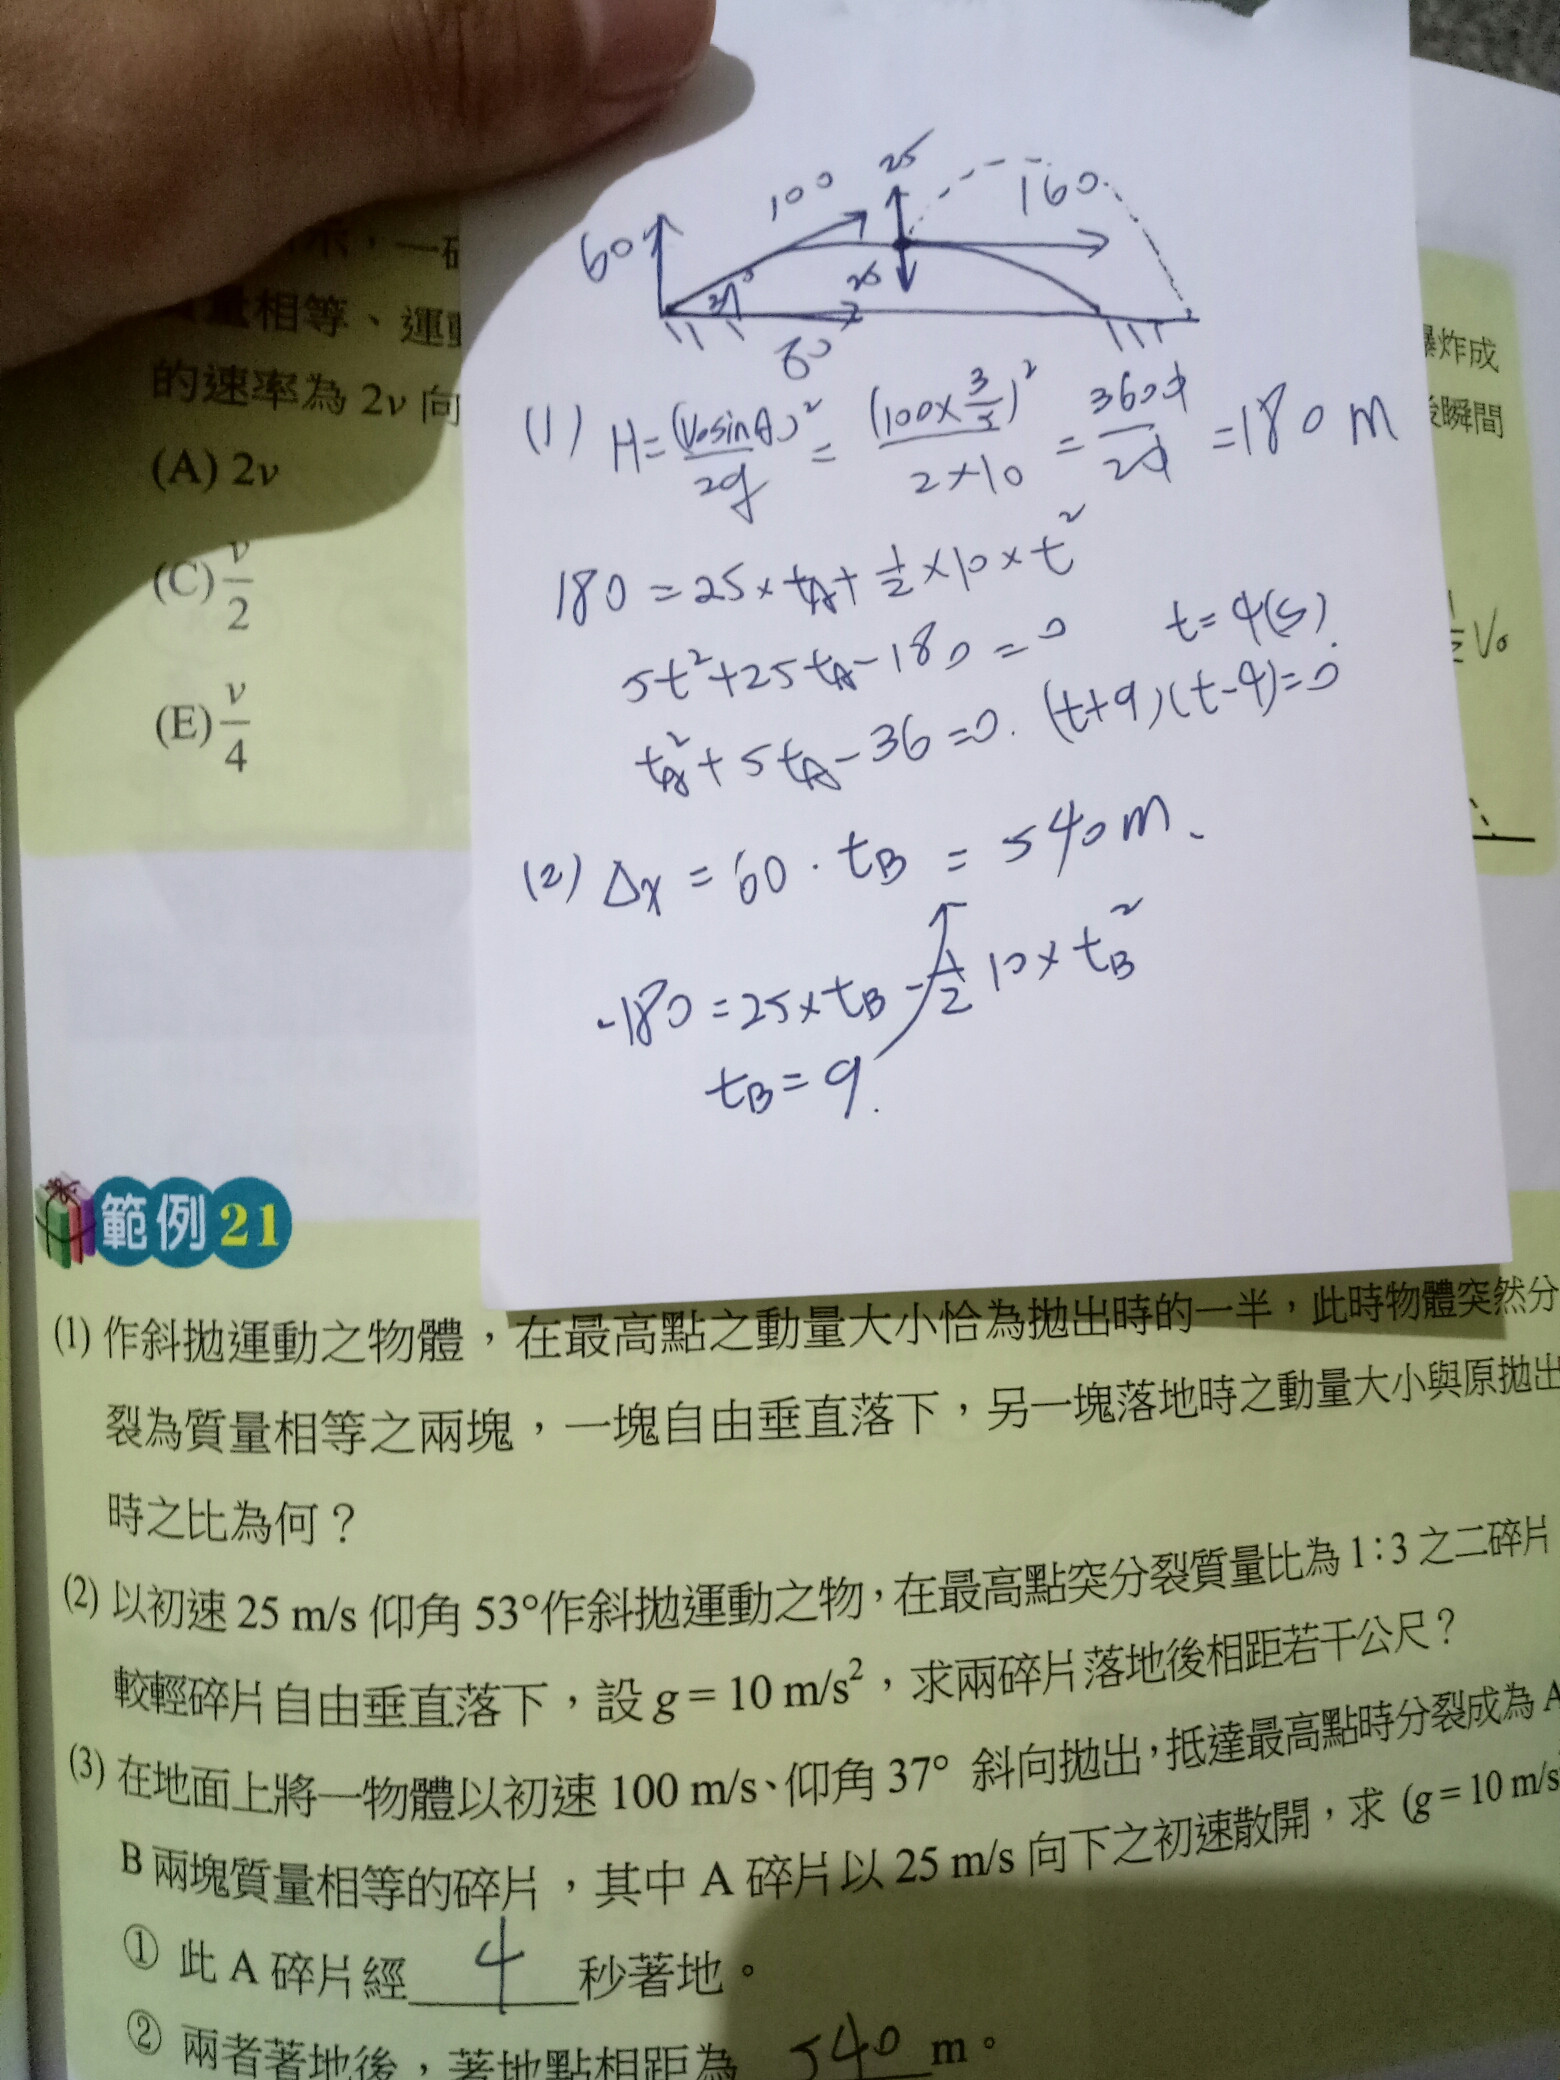 100
25
160
60
37°
25
80
(1) H=(V₀sinθ)²/2g = (100×3/5)²/2×10 = 3600/20 =180 m
180 = 25×tA+ 1/2×10×t²
5t²+25tA-180=0 t=4(s).
tA²+5tA-36=0. (t+9)(t-4)=0
(2) Δx = 60 · tB = 540m.
-180=25×tB-1/2 10×tB²
tB=9.
量相等、運
的速率為 2v 向
(A) 2v
(C) v/2
(E) v/4
爆炸成
瞬間
1/2 V₀
範例 21
(1) 作斜拋運動之物體，在最高點之動量大小恰為拋出時的一半，此時物體突然分
裂為質量相等之兩塊，一塊自由垂直落下，另一塊落地時之動量大小與原拋出
時之比為何？
(2) 以初速 25 m/s 仰角 53°作斜拋運動之物，在最高點突分裂質量比為 1：3 之二碎片
較輕碎片自由垂直落下，設 g = 10 m/s²，求兩碎片落地後相距若干公尺？
(3) 在地面上將一物體以初速 100 m/s、仰角 37° 斜向拋出，抵達最高點時分裂成為 A
B 兩塊質量相等的碎片，其中 A 碎片以 25 m/s 向下之初速散開，求 (g = 10 m/s
① 此 A 碎片經 4 秒著地。
② 兩者著地後，著地點相距為 540 m。